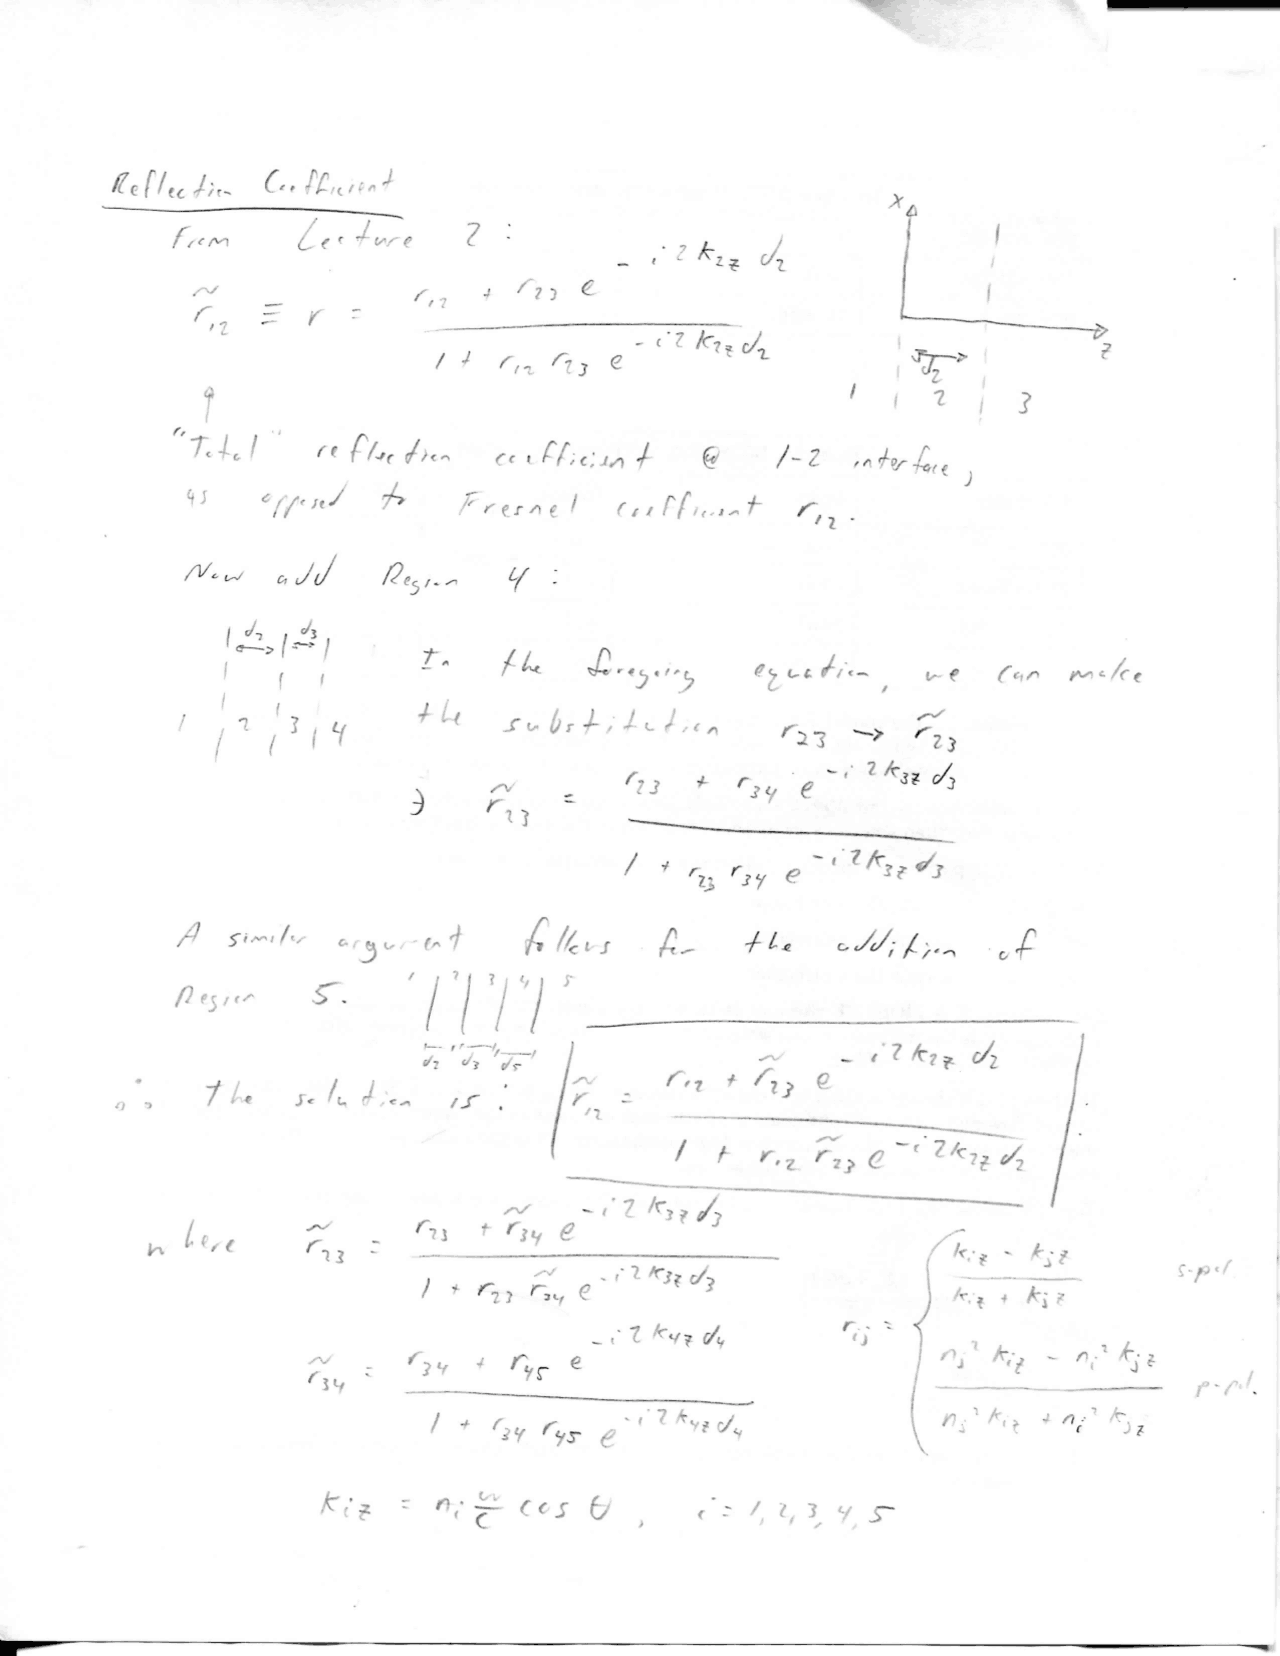 Reflection Coefficient
From Lecture 2:
r̃₁₂ ≡ r = (r₁₂ + r₂₃ e^{-i2k_{2z} d₂}) / (1 + r₁₂ r₂₃ e^{-i2k_{2z} d₂})
x
z
d₂
1 2 3
"Total" reflection coefficient @ 1-2 interface,
as opposed to Fresnel coefficient r₁₂.
Now add Region 4:
d₂ d₃
1 2 3 4
In the foregoing equation, we can make
the substitution r₂₃ → r̃₂₃
∋ r̃₂₃ = (r₂₃ + r₃₄ e^{-i2k_{3z} d₃}) / (1 + r₂₃ r₃₄ e^{-i2k_{3z} d₃})
A similar argument follows for the addition of
Region 5.
1 2 3 4 5
d₂ d₃ d₅
∴ the solution is: r̃₁₂ = (r₁₂ + r̃₂₃ e^{-i2k_{2z} d₂}) / (1 + r₁₂ r̃₂₃ e^{-i2k_{2z} d₂})
where r̃₂₃ = (r₂₃ + r̃₃₄ e^{-i2k_{3z} d₃}) / (1 + r₂₃ r̃₃₄ e^{-i2k_{3z} d₃})
r̃₃₄ = (r₃₄ + r₄₅ e^{-i2k_{4z} d₄}) / (1 + r₃₄ r₄₅ e^{-i2k_{4z} d₄})
r_{ij} = { (k_{iz} - k_{jz}) / (k_{iz} + k_{jz}) s-pol
(n_j² k_{iz} - n_i² k_{jz}) / (n_j² k_{iz} + n_i² k_{jz}) p-pol.
k_{iz} = n_i ω/c cos θ, i = 1, 2, 3, 4, 5